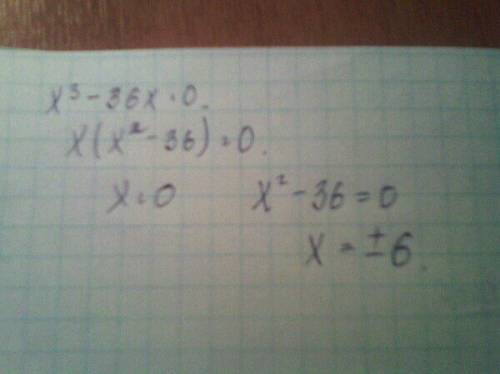 x³ - 36x = 0.
x(x² - 36) = 0.
x = 0    x² - 36 = 0
x = ±6.